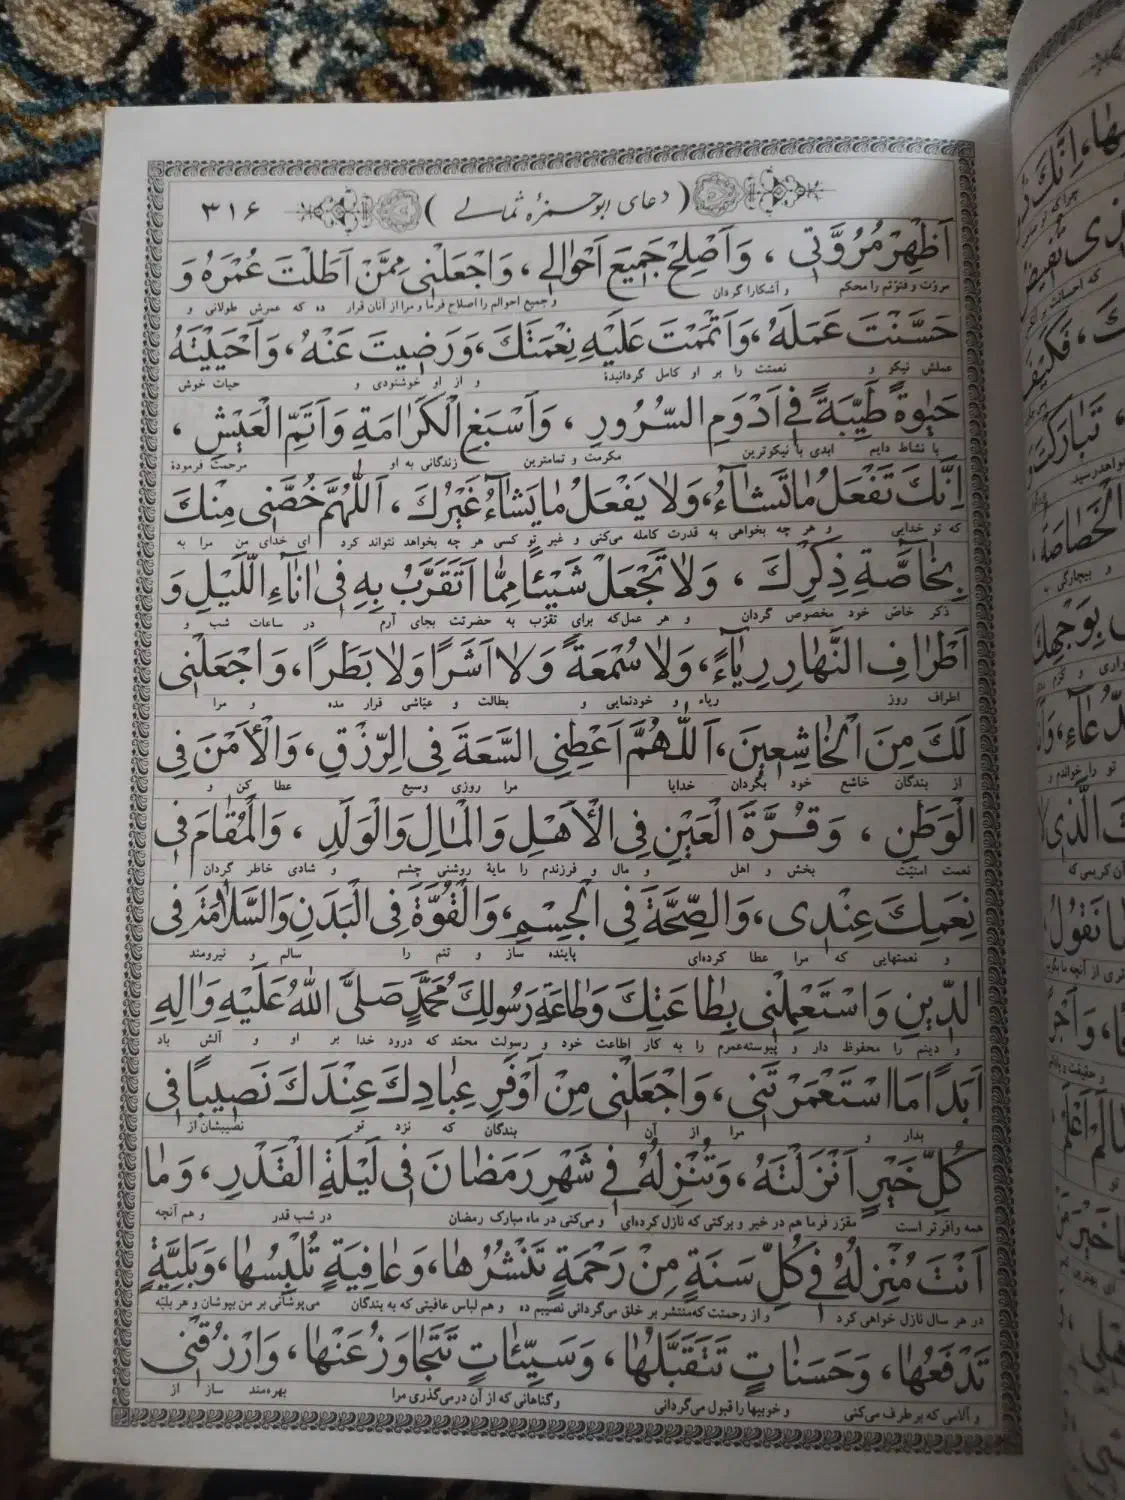 ( دعای ابوحمزهٔ ثمالی ) ۳۱۶
اَظْهِرْ مُرُوَّتى ، وَاَصْلِحْ جَميعَ اَحْوالى ، وَاجْعَلْنى مِمَّنْ اَطَلْتَ عُمْرَهُ وَ
مروّت و فتوّتم را محکم و آشکارا گردان و جمیع احوالم را اصلاح فرما و مرا از آنان قرار ده که عمرش طولانی و
حَسَّنْتَ عَمَلَهُ، وَاَتْمَمْتَ عَلَيْهِ نِعْمَتَكَ، وَرَضِيتَ عَنْهُ، وَاَحْيَيْتَهُ
عملش نیکو و نعمتت را بر او کامل گردانیدهٔ و از او خوشنودی و حیات خوش
حَيٰوةً طَيِّبَةً فى اَدْوَمِ السُّرُورِ ، وَاَسْبَغِ الْكَرٰامَةِ وَاَتَمِّ الْعَيْشِ ،
با نشاط دایم ابدی با نیکوترین مکرمت و تمامترین زندگانی به او مرحمت فرمودهٔ
اِنَّكَ تَفْعَلُ مٰا تَشٰاۤءُ، وَلا يَفْعَلُ مٰا يَشٰاۤءُ غَيْرُكَ ، اَللّٰهُمَّ خُصَّنى مِنْكَ
که تو خدایی و هر چه بخواهی به قدرت کامله می‌کنی و غیر تو کسی هر چه بخواهد نتواند کرد ای خدای من مرا به
بِخٰاۤصَّةِ ذِكْرِكَ ، وَلا تَجْعَلْ شَيْئاً مِمّٰا اَتَقَرَّبُ بِهِ فى اٰنٰاۤءِ اللَّيْلِ وَ
ذکر خاصّ خود مخصوص گردان و هر عمل که برای تقرّب به حضرتت بجای آرم در ساعات شب و
اَطْرٰافِ النَّهٰارِ رِيٰاۤءً، وَلا سُمْعَةً وَلا اَشَرًا وَلا بَطَرًا، وَاجْعَلْنى
اطراف روز ریاء و خودنمایی و بطالت و عیّاشی قرار مده و مرا
لَكَ مِنَ الْخٰاشِعينَ، اَللّٰهُمَّ اَعْطِنِى السَّعَةَ فِى الرِّزْقِ، وَالْاَمْنَ فِى
از بندگان خاشع خود بگردان خدایا مرا روزی وسیع عطا کن و
الْوَطَنِ ، وَقُرَّةَ الْعَيْنِ فِى الْاَهْلِ وَالْمٰالِ وَالْوَلَدِ ، وَالْمُقٰامَ فى
نعمت امنیّت بخش و اهل و مال و فرزندم را مایهٔ روشنی چشم و شادی خاطر گردان
نِعَمِكَ عِنْدى، وَالصِّحَّةَ فِى الْجِسْمِ، وَالْقُوَّةَ فِى الْبَدَنِ وَالسَّلٰامَةَ فِى
و نعمتهایی که مرا عطا کرده‌ای پاینده ساز و تنم را سالم و نیرومند
الدّينِ وَاسْتَعْمِلْنى بِطٰاعَتِكَ وَطٰاعَةِ رَسُولِكَ مُحَمَّدٍ صَلَّى اللّٰهُ عَلَيْهِ وَاٰلِهِ
و دینم را محفوظ دار و پیوسته عمرم را به کار اطاعت خود و رسولت محمّد که درود خدا بر او و آلش باد
اَبَدًا مَا اسْتَعْمَرْتَنى، وَاجْعَلْنى مِنْ اَوْفَرِ عِبٰادِكَ عِنْدَكَ نَصيبًا فى
بدار و مرا از آن بندگان که نزد تو نصیبشان از
كُلِّ خَيْرٍ اَنْزَلْتَهُ، وَتُنْزِلُهُ فى شَهْرِ رَمَضٰانَ فى لَيْلَةِ الْقَدْرِ، وَمٰا
همه وافرتر است مقرّر فرما هم در خیر و برکتی که نازل کرده‌ای و می‌کنی در ماه مبارک رمضان در شب قدر و هم آنچه
اَنْتَ مُنْزِلُهُ فى كُلِّ سَنَةٍ مِنْ رَحْمَةٍ تَنْشُرُهٰا، وَعٰافِيَةٍ تُلْبِسُهٰا، وَبَلِيَّةٍ
در هر سال نازل خواهی کرد و از رحمتت که منتشر بر خلق می‌گردانی نصیبم ده و هم لباس عافیتی که به بندگان می‌پوشانی بر من بپوشان و هر بلیّه
تَدْفَعُهٰا، وَحَسَنٰاتٍ تَتَقَبَّلُهٰا، وَسَيِّئٰاتٍ تَتَجٰاوَزُ عَنْهٰا، وَارْزُقْنى
و آلامی که برطرف می‌کنی و خوبیها را قبول می‌گردانی و گناهانی که از آن درمی‌گذری مرا بهره‌مند ساز از